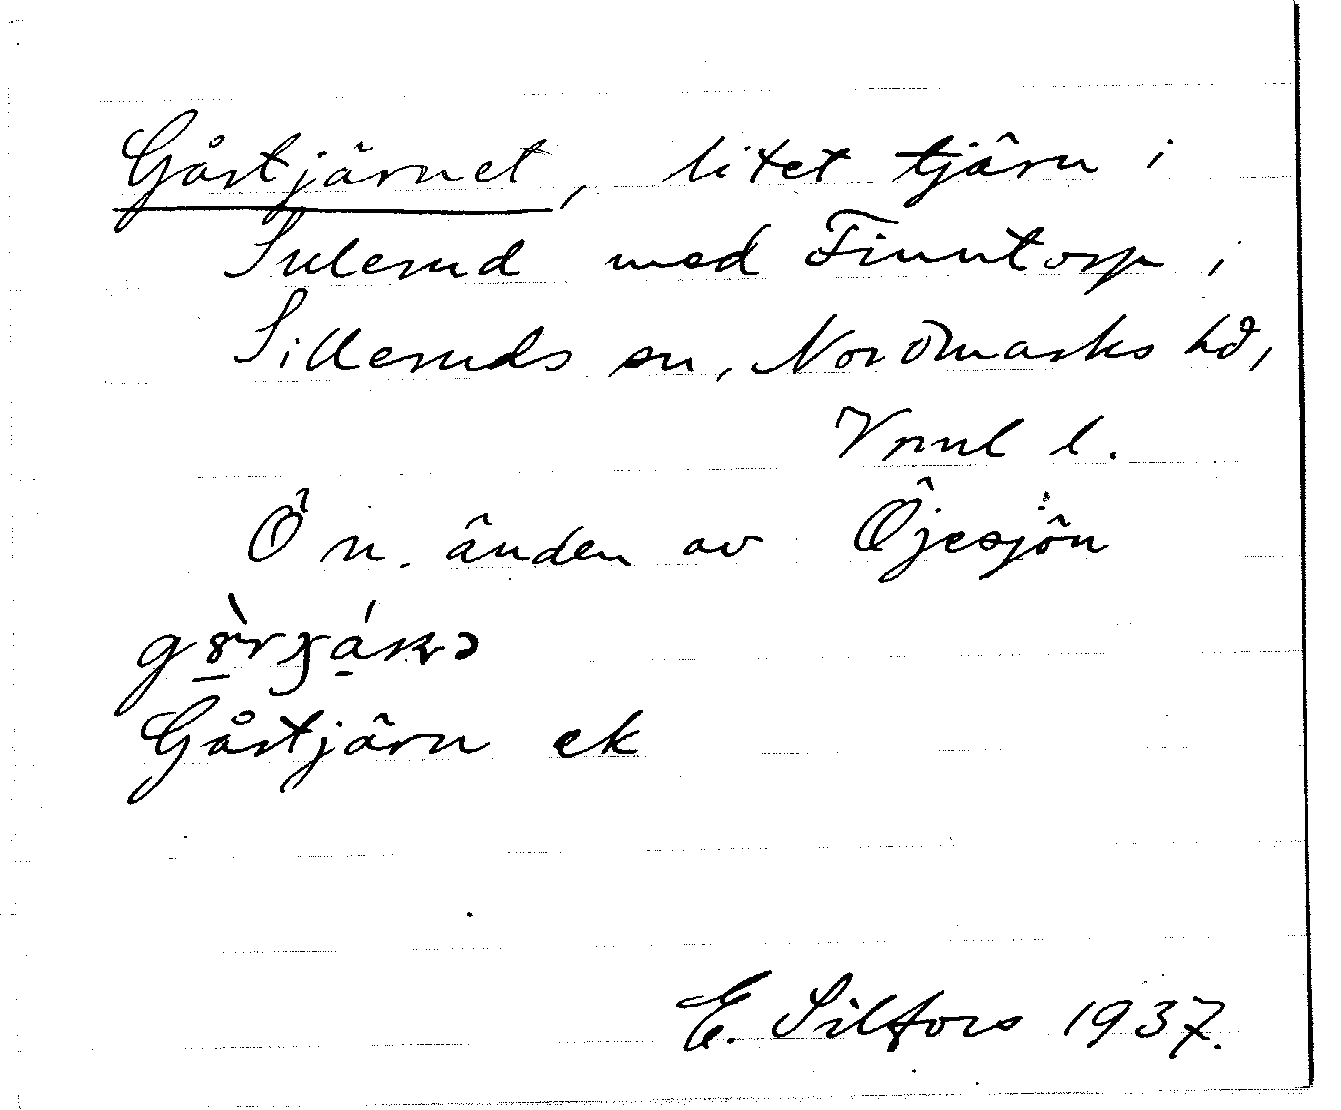 Gåstjärnet, litet tjärn i
Sulerud med Finntorp i
Silleruds sn, Nordmarks hd,
Vrml l.
Ö n. änden av Öjesjön
Gåstjärn ek
E. Silfors 1937.